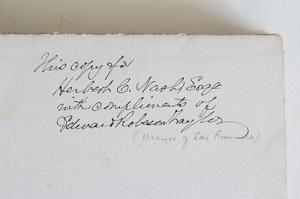 This copy for
Herbert C. Nash Esqr
with compliments of
Edward Robeson Taylor
(Mayor of San Francisco)